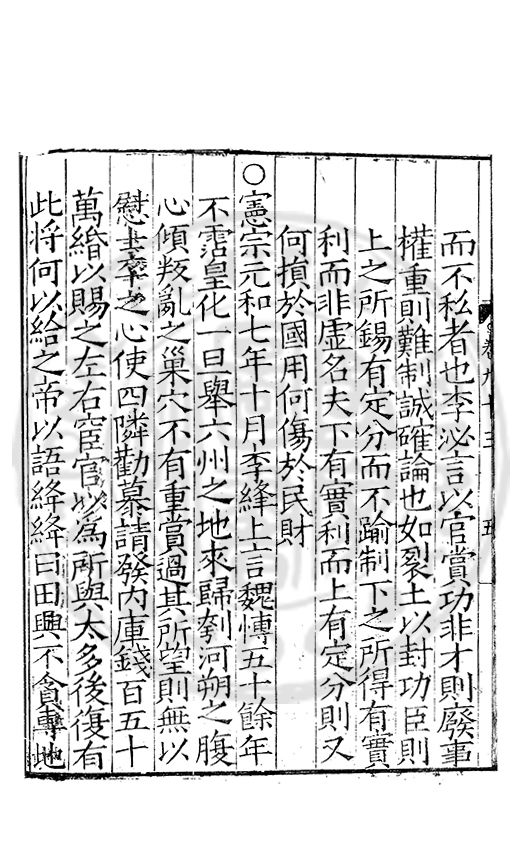 而不私者也李泌言以官賞功非才則廢事
權重則難制誠確論也如裂土以封功臣則
上之所錫有定分而不踰制下之所得有實
利而非虛名夫下有實利而上有定分則又
何損於國用何傷於民財
〇憲宗元和七年十月李絳上言魏博五十餘年
不霑皇化一旦舉六州之地來歸刳河朔之腹
心傾叛亂之巢穴不有重賞過其所望則無以
慰士卒之心使四隣勸慕請發內庫錢百五十
萬緡以賜之左右宦官以為所與太多後復有
此將何以給之帝以語絳絳曰田興不貪專地